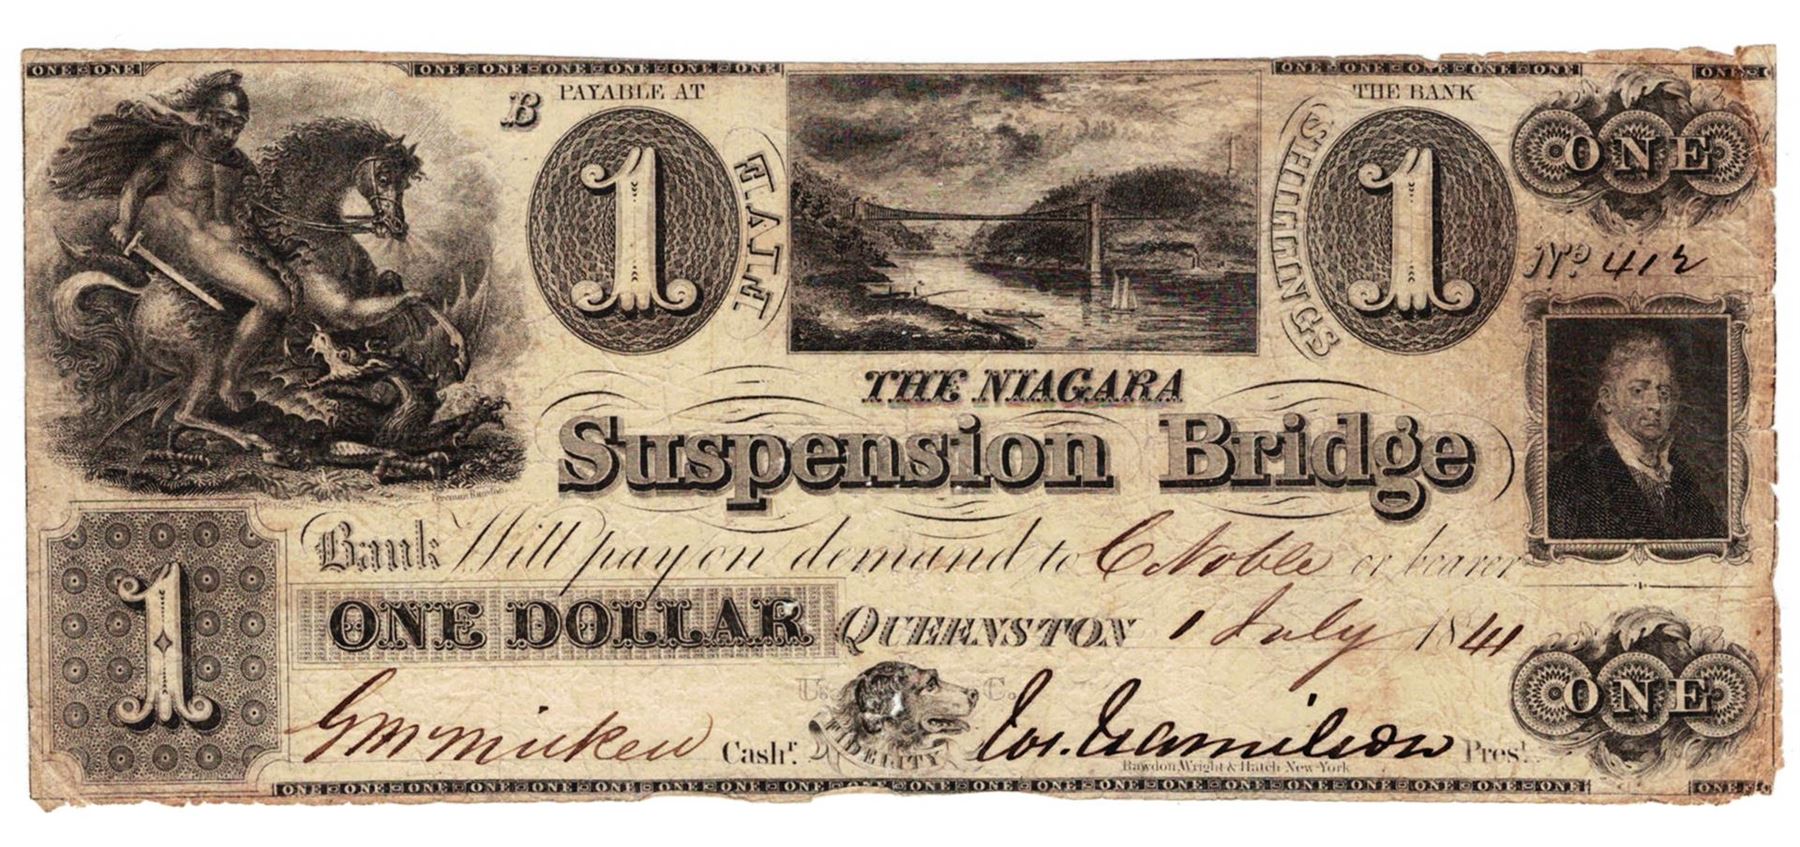 ONE ONE ONE ONE ONE ONE ONE ONE ONE ONE ONE ONE ONE ONE
B PAYABLE AT THE BANK
1 FIVE SHILLINGS 1 ONE
No 412
THE NIAGARA
Suspension Bridge
Bank Will pay on demand to C Noble or bearer
1 ONE DOLLAR QUEENSTON 1 July 1841
ONE
U. C.
Cashr. FIDELITY Jos. Hamilson Prest.
Rawdon, Wright & Hatch New-York
ONE ONE ONE ONE ONE ONE ONE ONE ONE ONE ONE ONE ONE ONE ONE ONE ONE ONE ONE ONE ONE